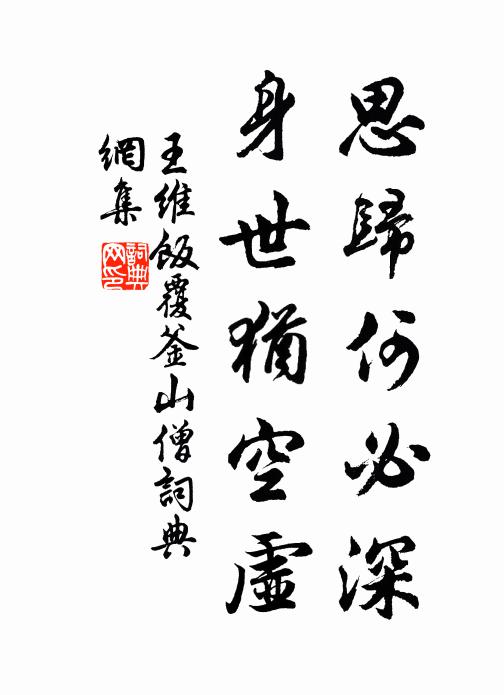 思歸何必深
身世猶空虛
王維飯覆釜山僧詞典
網集
詞典
网印